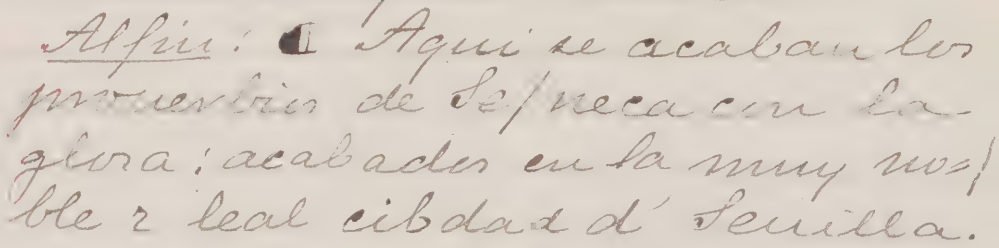 Al fin: ¶ Aqui se acaban los
prouerbios de Se/neca con la
glosa: acabados en la muy no=/
ble ꝛ leal cibdad d' Seuilla.